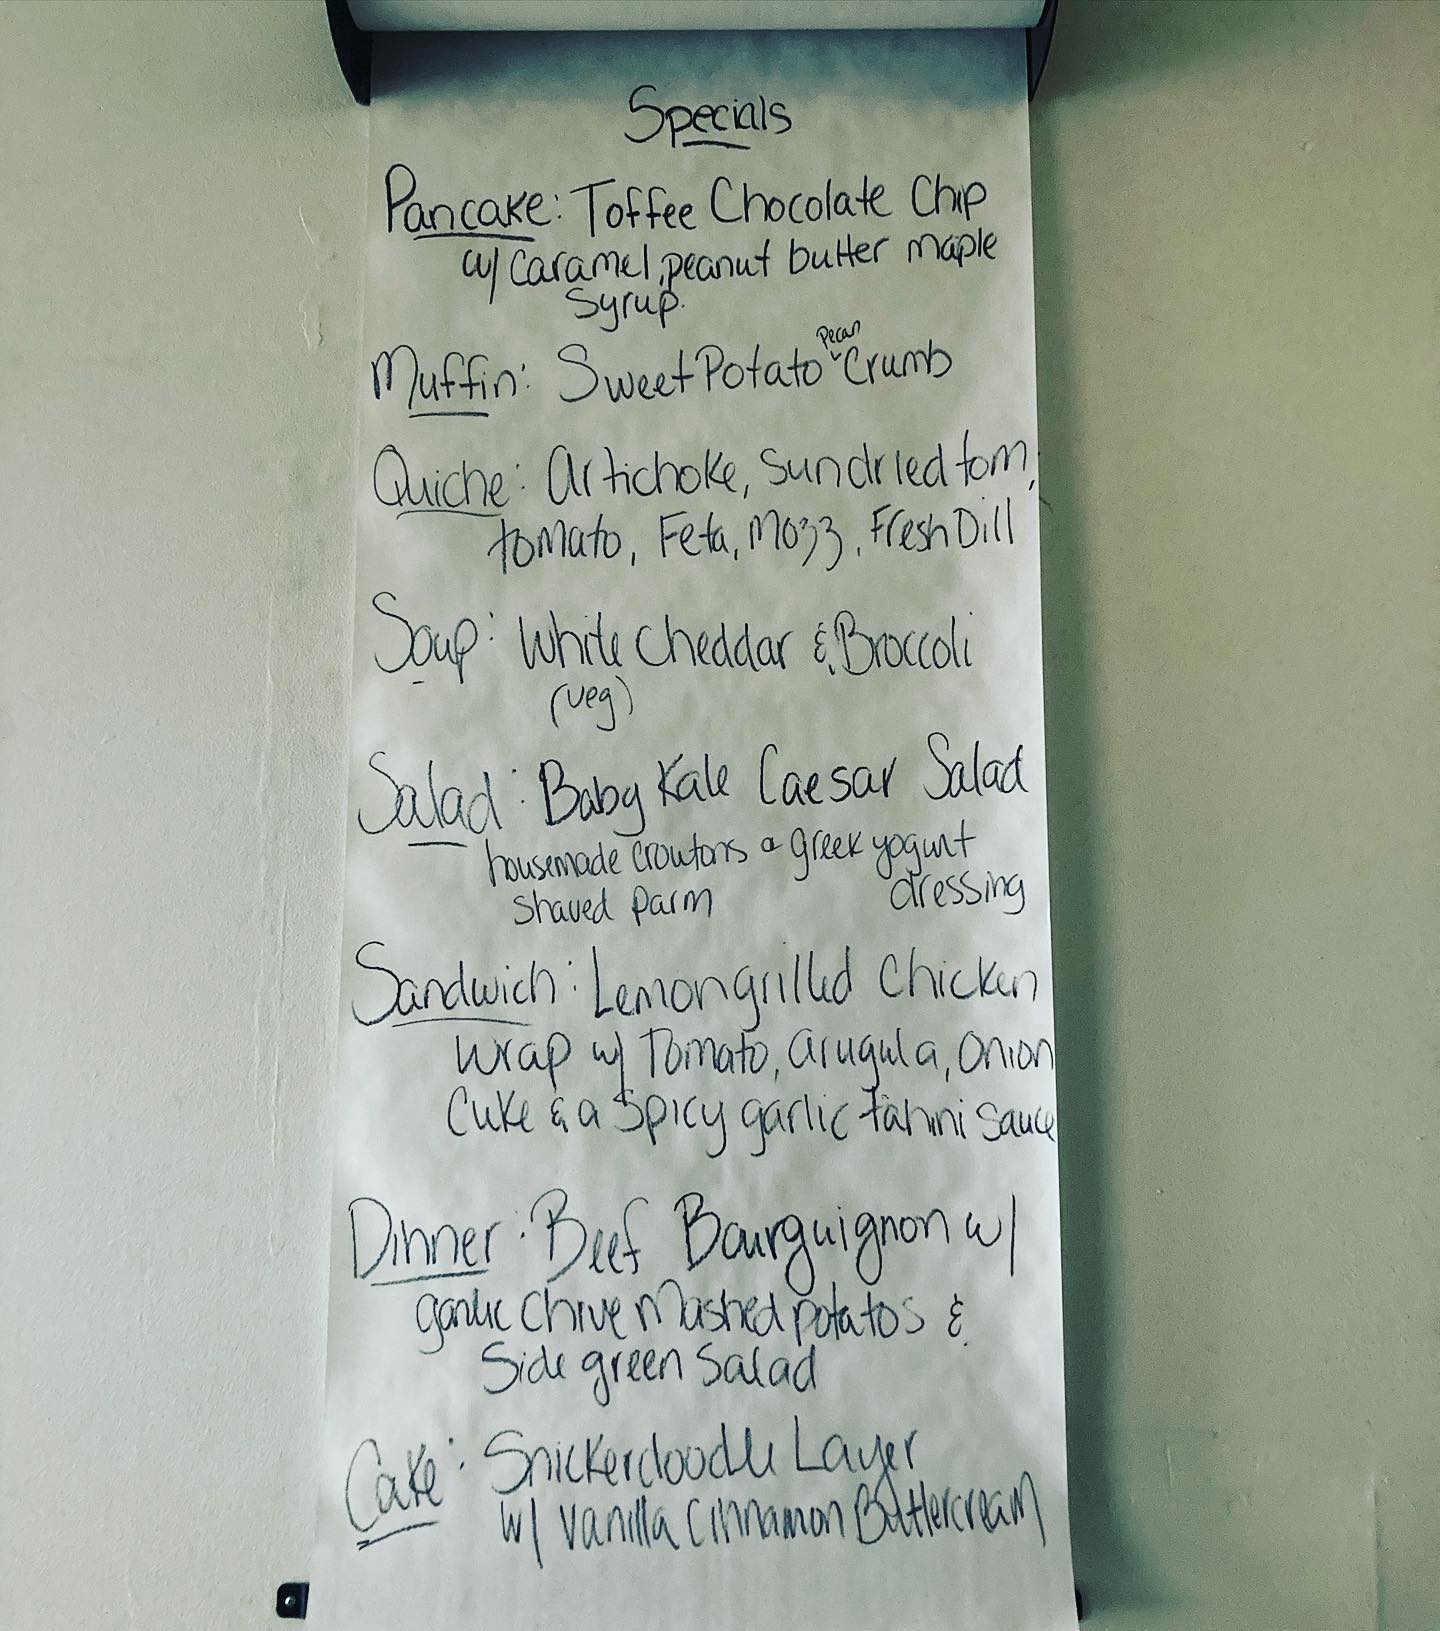 Specials
Pancake: Toffee Chocolate Chip
w/ Caramel, peanut butter maple
syrup.
Muffin: Sweet Potato Pecan Crumb
Quiche: Artichoke, Sundried tom,
tomato, Feta, Mozz, Fresh Dill
Soup: White Cheddar & Broccoli
(veg)
Salad: Baby Kale Caesar Salad
housemade croutons & greek yogurt
shaved parm dressing
Sandwich: Lemon grilled Chicken
Wrap w/ Tomato, arugula, onion
Cuke & a Spicy garlic tahini sauce
Dinner: Beef Bourguignon w/
garlic Chive Mashed potatos &
Side green Salad
Cake: Snickerdoodle Layer
w/ Vanilla Cinnamon Buttercream